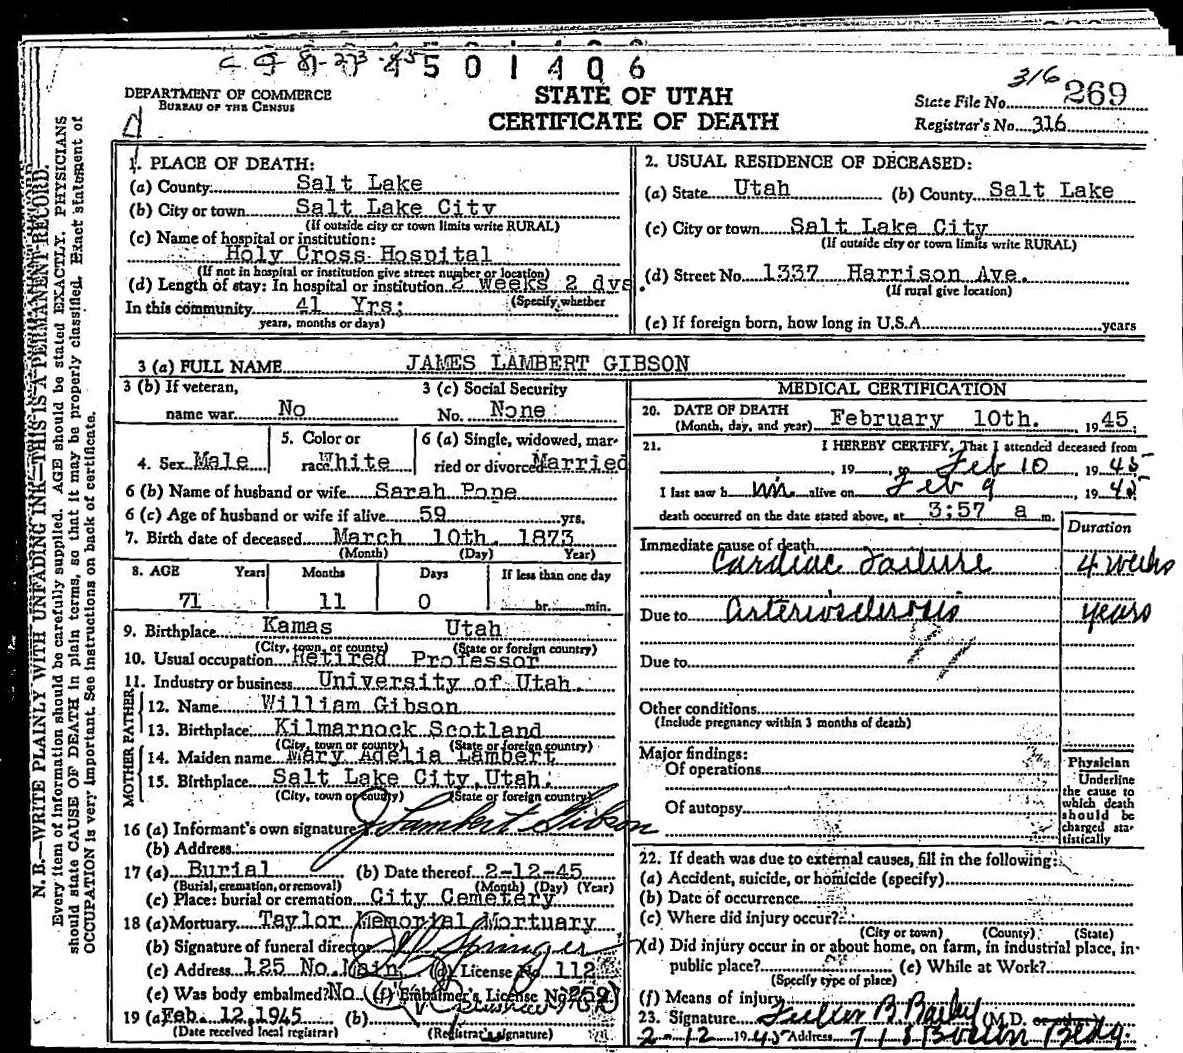 C 9 8-23-45 4 5 0 1 4 0 6
DEPARTMENT OF COMMERCE
BUREAU OF THE CENSUS
STATE OF UTAH
CERTIFICATE OF DEATH
316
State File No. 269
Registrar's No. 316
N. B.—WRITE PLAINLY WITH UNFADING INK—THIS IS A PERMANENT RECORD.
Every item of information should be carefully supplied. AGE should be stated EXACTLY. PHYSICIANS
should state CAUSE OF DEATH in plain terms, so that it may be properly classified. Exact statement of
OCCUPATION is very important. See instructions on back of certificate.
1. PLACE OF DEATH:
(a) County Salt Lake
(b) City or town Salt Lake City
(If outside city or town limits write RURAL)
(c) Name of hospital or institution:
Holy Cross Hospital
(If not in hospital or institution give street number or location)
(d) Length of stay: In hospital or institution 2 weeks 2 dys.
(Specify whether
In this community 41 Yrs;
years, months or days)
2. USUAL RESIDENCE OF DECEASED:
(a) State Utah (b) County Salt Lake
(c) City or town Salt Lake City
(If outside city or town limits write RURAL)
(d) Street No. 1337 Harrison Ave.
(If rural give location)
(e) If foreign born, how long in U.S.A. years
3 (a) FULL NAME JAMES LAMBERT GIBSON
3 (b) If veteran, name war No
3 (c) Social Security No. None
4. Sex Male
5. Color or race White
6 (a) Single, widowed, married or divorced Married
6 (b) Name of husband or wife Sarah Pope
6 (c) Age of husband or wife if alive 59 yrs.
7. Birth date of deceased March 10th. 1873
(Month) (Day) Year)
8. AGE Years Months Days If less than one day
71 11 0 hr. min.
9. Birthplace Kamas Utah
(City, town, or county) (State or foreign country)
10. Usual occupation Retired Professor
11. Industry or business University of Utah.
FATHER
12. Name William Gibson
13. Birthplace Kilmarnock Scotland
(City, town or county) (State or foreign country)
MOTHER
14. Maiden name Mary Adelia Lambert
15. Birthplace Salt Lake City, Utah.
(City, town or county) (State or foreign country)
16 (a) Informant's own signature J Lambert Gibson
(b) Address
17 (a) Burial (b) Date thereof 2-12-45
(Burial, cremation, or removal) (Month) (Day) (Year)
(c) Place: burial or cremation City Cemetery
18 (a) Mortuary Taylor Memorial Mortuary
(b) Signature of funeral director Springer
(c) Address 125 No. Main (d) License No. 112
(e) Was body embalmed? No (f) Embalmer's License No. 259
19 (a) Feb. 12, 1945 (b)
(Date received local registrar) (Registrar's signature)
MEDICAL CERTIFICATION
20. DATE OF DEATH
(Month, day, and year) February 10th. 1945;
21. I HEREBY CERTIFY, That I attended deceased from
, 19 , to Feb 10 , 1945
I last saw him alive on Feb 9 , 1945
death occurred on the date stated above, at 3:57 a m.
Duration
Immediate cause of death
Cardiac Failure 4 weeks
Due to arteriosclerosis years
Due to
Other conditions
(Include pregnancy within 3 months of death)
Major findings:
Of operations
Of autopsy
Physician
Underline
the cause to
which death
should be
charged sta-
tistically
22. If death was due to external causes, fill in the following:
(a) Accident, suicide, or homicide (specify)
(b) Date of occurrence
(c) Where did injury occur?
(City or town) (County) (State)
(d) Did injury occur in or about home, on farm, in industrial place, in
public place? (e) While at Work?
(Specify type of place)
(f) Means of injury
23. Signature B. (M.D. or other)
2-12 1945 Address 718 Bldg